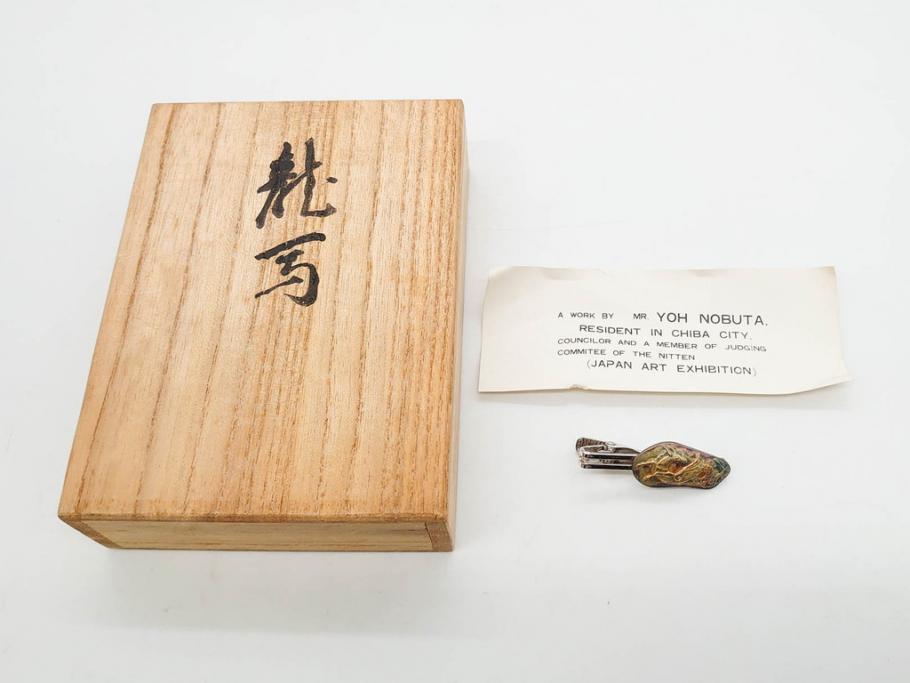 龍
馬
A WORK BY MR. YOH NOBUTA.
RESIDENT IN CHIBA CITY.
COUNCILOR AND A MEMBER OF JUDGING
COMMITEE OF THE NITTEN
(JAPAN ART EXHIBITION)